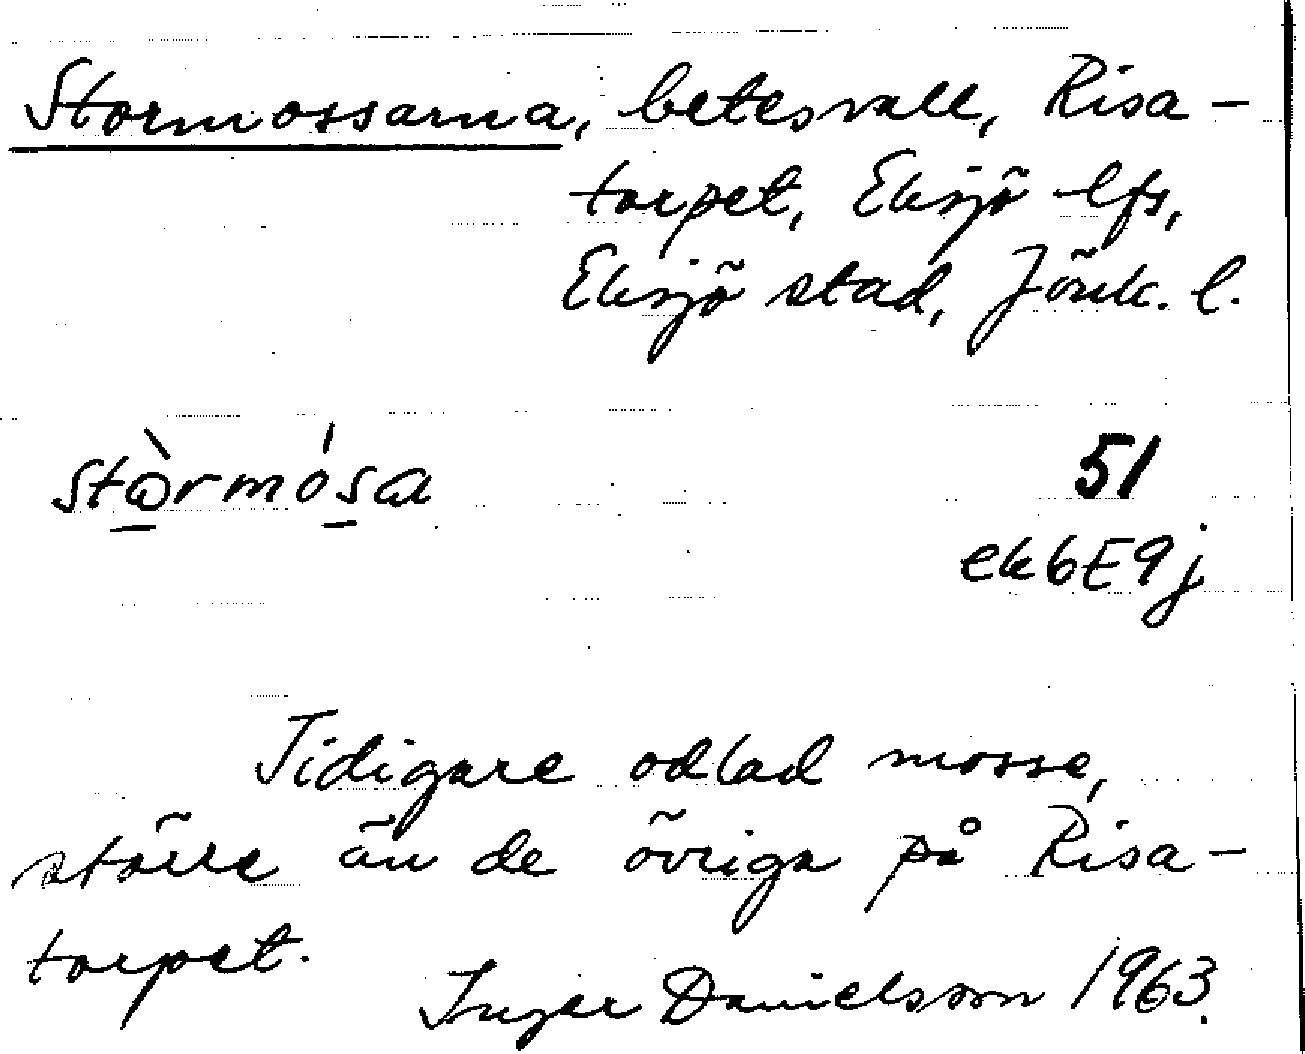 Stormossarna, betesvall, Risa-
torpet, Eksjö lfs,
Eksjö stad, Jönk. l.
stòrmósa
51
ek6E9j
Tidigare odlad mosse,
större än de övriga på Risa-
torpet.
Inger Danielsson 1963.